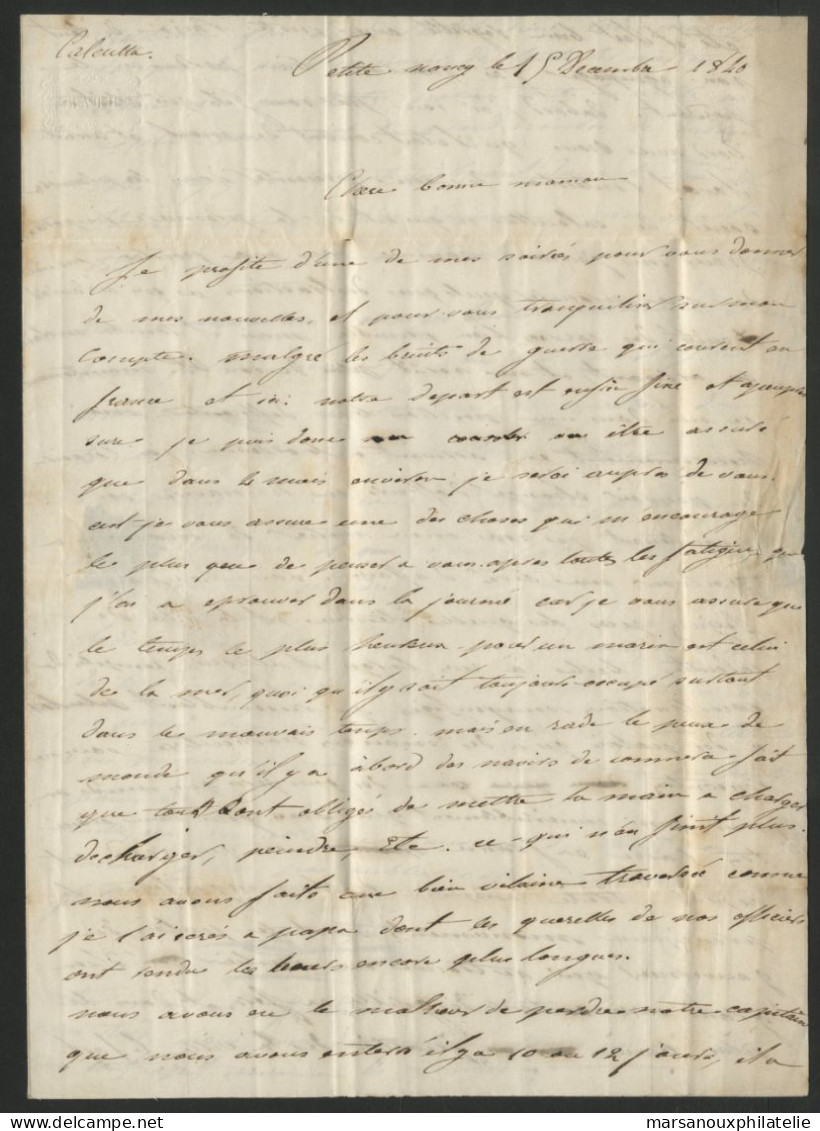 Calcutta.
Petite nancy le 15 Decembre 1840
Chere bonne maman
Je profite d'une de mes soirées pour vous donner
de mes nouvelles, et pour vous tranquiliser sur mon
compte. malgré les bruits de guerre qui courent en
france et ici. notre depart est enfin fixé et
sure je puis donc être assuré
que dans le mois je serai aupres de vous.
c'est je vous assure une des choses qui m'encourage
le plus que de penser a vous apres toutes les fatigues que
j'ai a eprouver dans la journé car je vous assure que
le temps le plus heureux pour un marin est celui
de la mer, quoi qu'il y soit toujours occupé surtout
dans le mauvais temps. mais en rade le peux de
monde qu'il y a abord des navires de commerce fait
que tous sont obligés de mettre la main a charger
decharger, peindre, etc. ce qui n'en finit plus.
nous avons faits une bien vilaine traversée comme
je l'ai ecrés a papa dont les querelles de nos officiers
ont rendu les heures encore plus longues.
nous avons eu le malheur de perdre notre capitaine
que nous avons enterré il y a 10 ou 12 jours, il a
www.marsanouxphilatelie.com